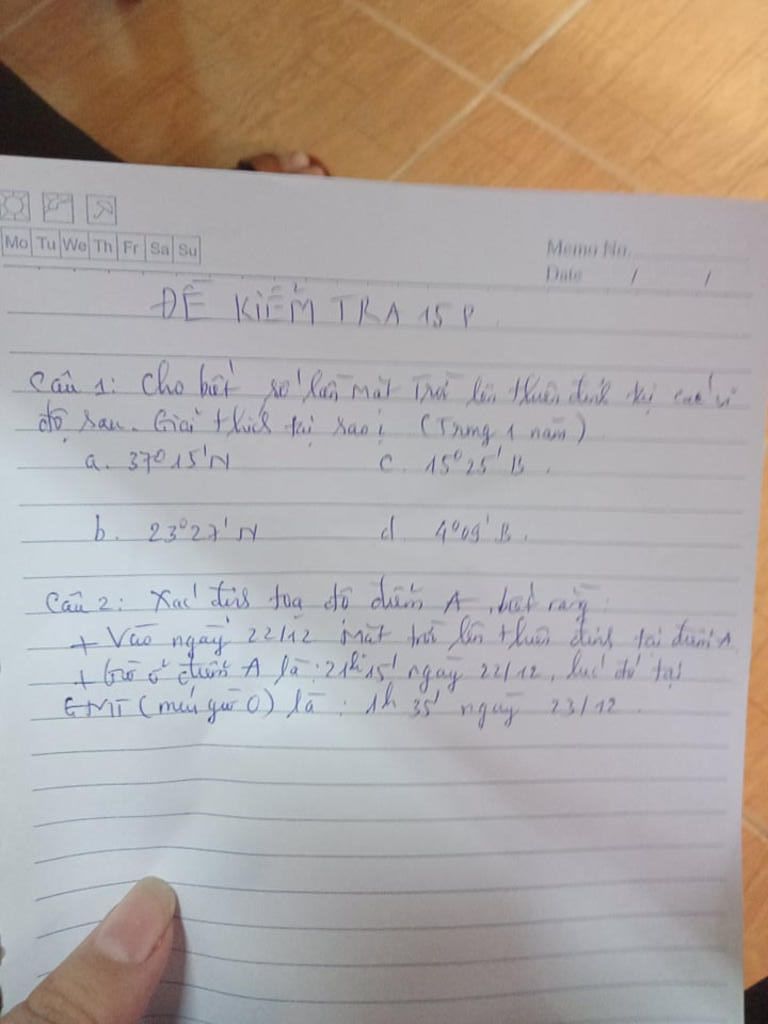 Mo Tu We Th Fr Sa Su
Memo No.
Date / /
ĐỀ KIỂM TRA 15 P
Câu 1: Cho biết số lần mặt trời lên thiên đỉnh tại các vĩ
độ sau. Giải thích tại sao? (Trong 1 năm)
a. 37°15'N c. 15°25'B.
b. 23°27'N d. 4°09'B.
Câu 2: Xác định toạ độ điểm A, biết rằng:
+ Vào ngày 22/12 Mặt trời lên thiên đỉnh tại điểm A
+ Giờ ở điểm A là: 21h15' ngày 22/12, lúc đó tại
GMT (múi giờ 0) là: 1h 35' ngày 23/12.